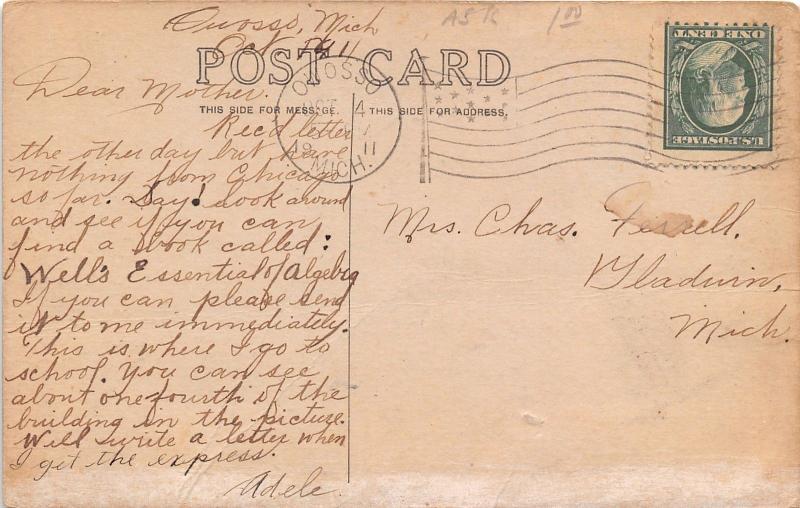 Owosso, Mich
Oct. 1911
A5K
1.00
POST CARD
THIS SIDE FOR MESSAGE.
THIS SIDE FOR ADDRESS.
OWOSSO
OCT 4
1911
MICH.
ONE CENT
U.S. POSTAGE
Dear Mother.
Rec'd letter
the other day but have
nothing from Chicago
so far. Say! Look around
and see if you can
find a book called:
Well's Essential of Algebra
If you can please send
it to me immediately.
This is where I go to
school. You can see
about one fourth of the
building in the picture.
Will write a letter when
I get the express.
Adele.
Mrs. Chas. Ferrell.
Gladwin,
Mich.